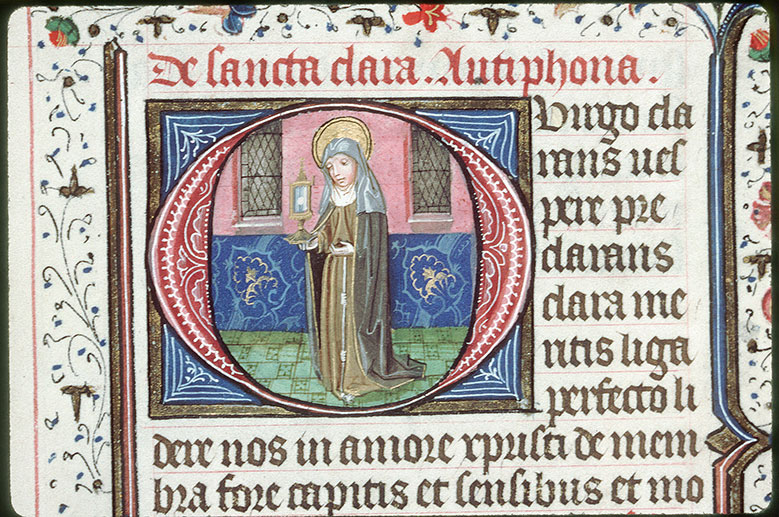 De sancta clara. Antiphona.
O virgo cla
rans ves
pere pre
clarans
clara me
ritis liga
perfecto li
dere nos in amore xpristi de mem
bra fore capitis et sensibus et mo